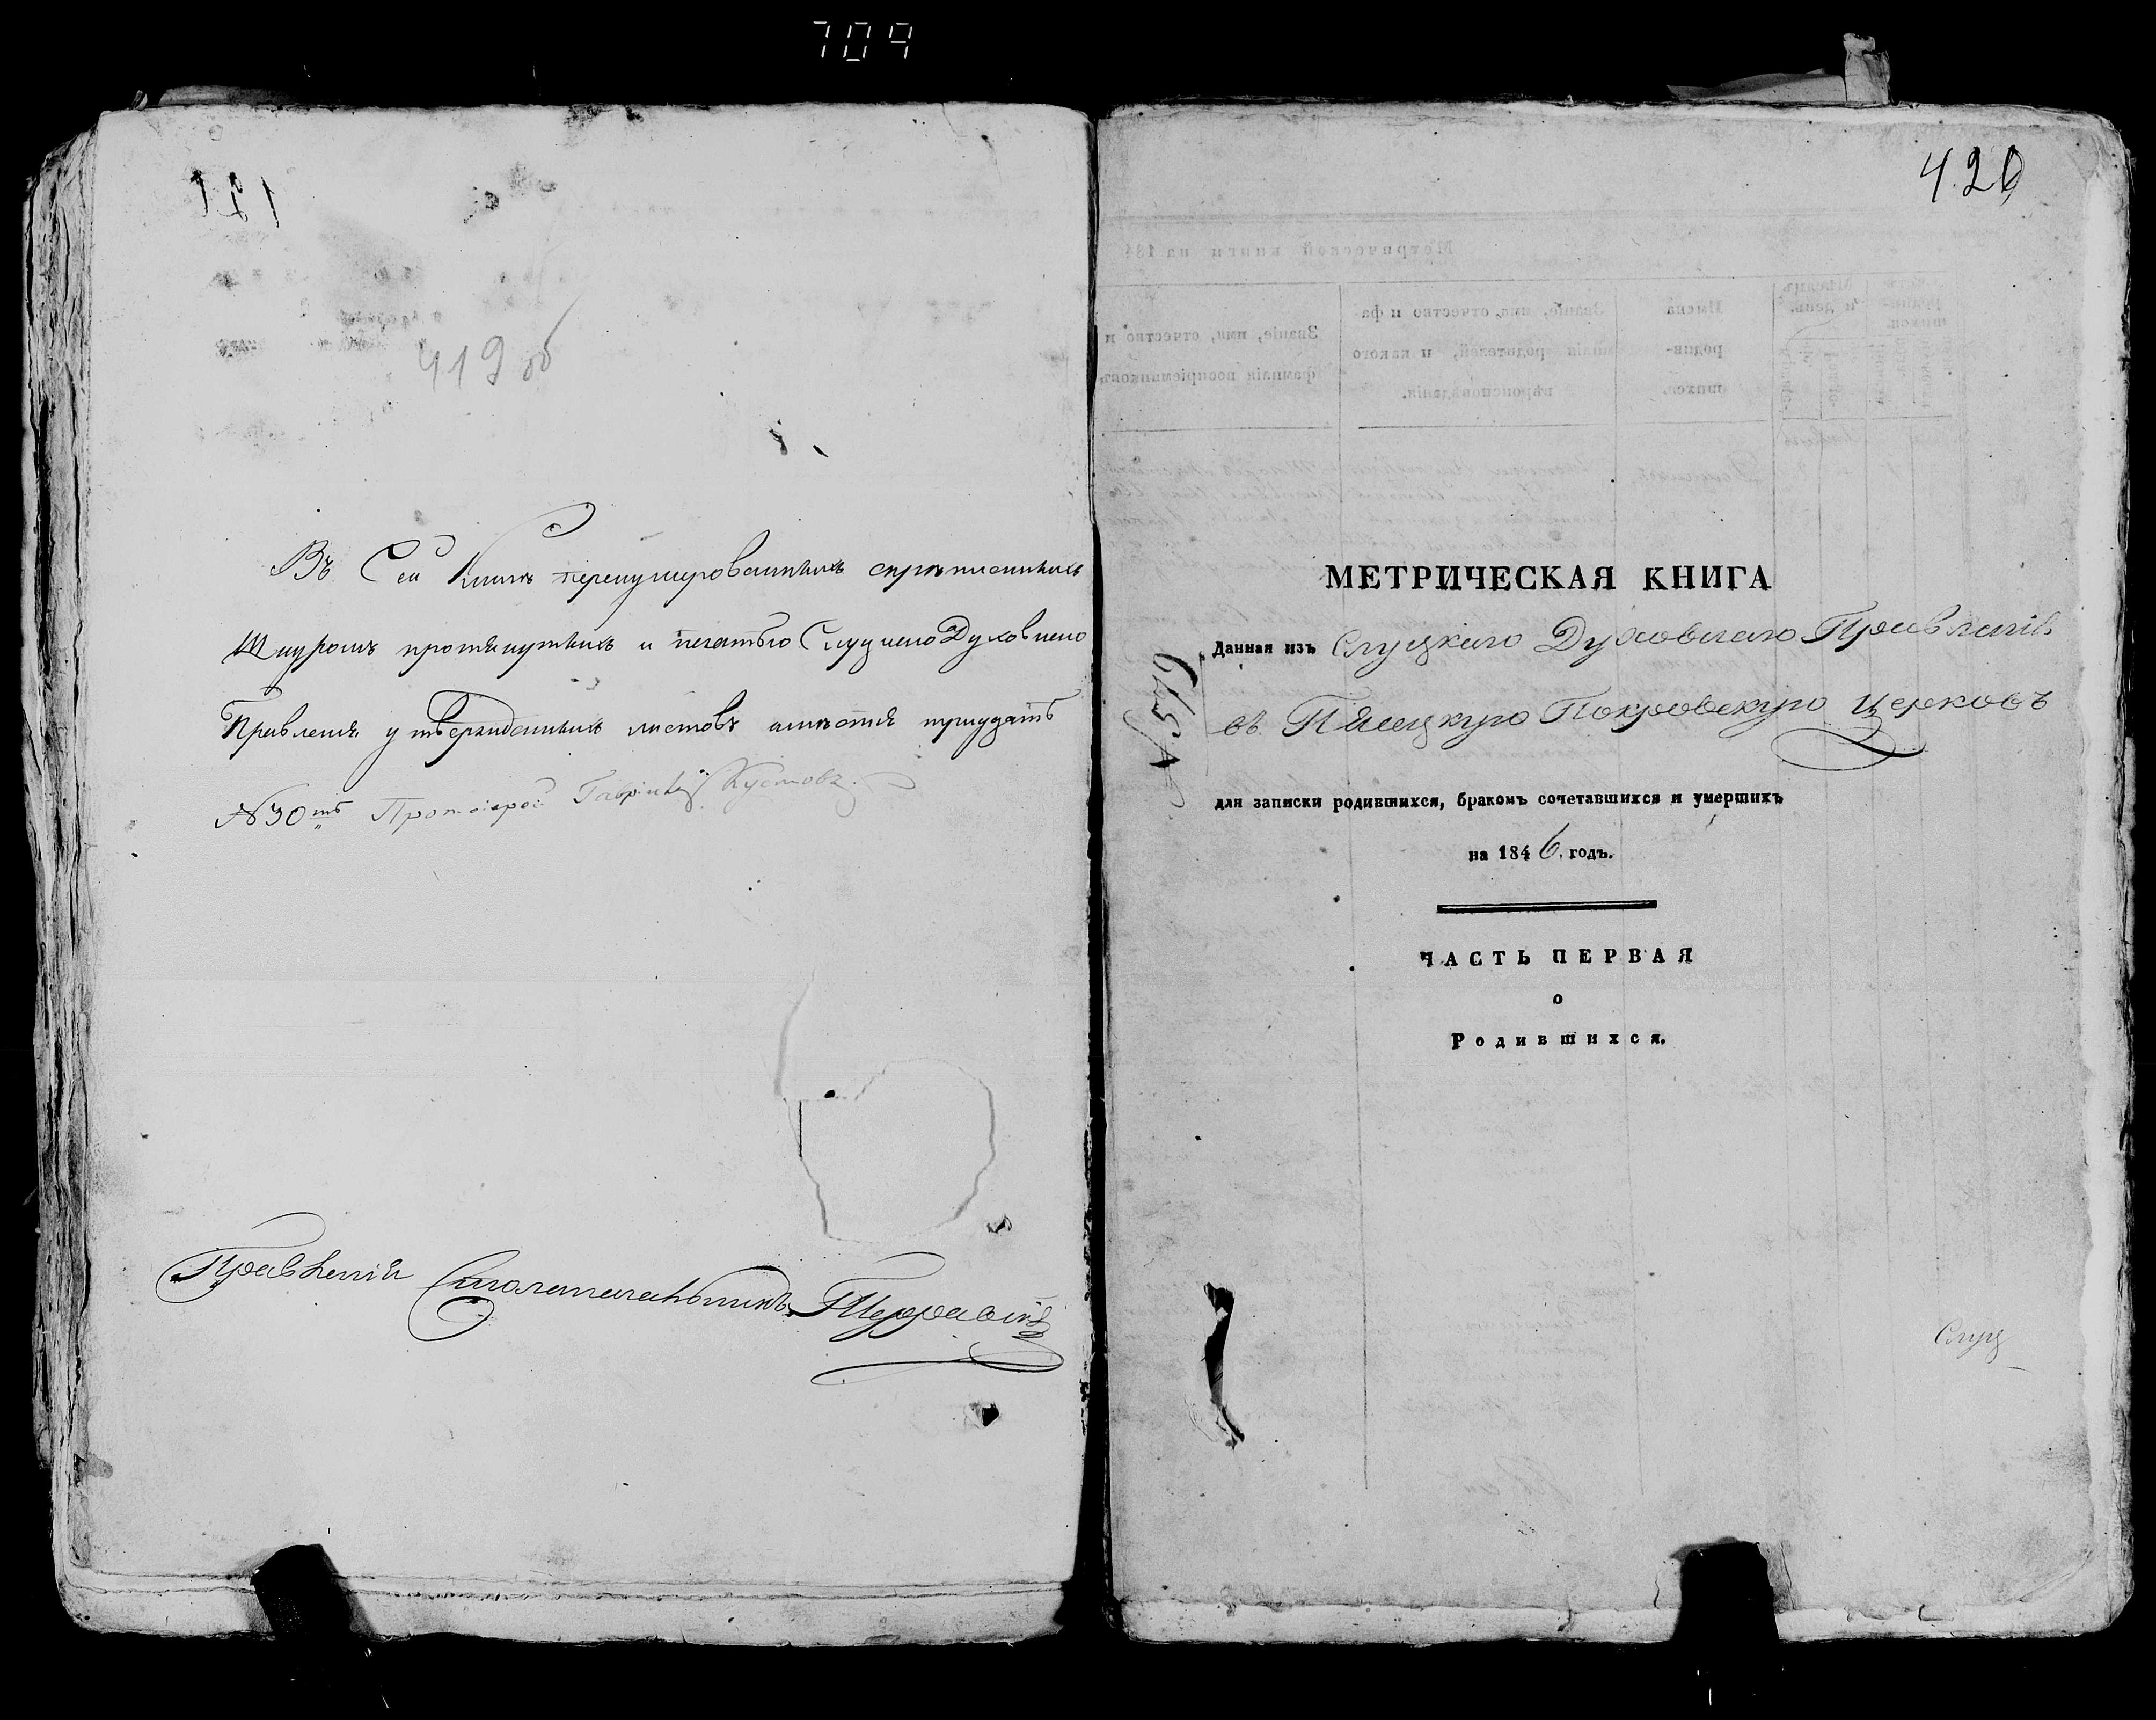 709
419 об
Въ Сей Книгѣ перенумерованныхъ скрѣпленныхъ
Шнуромъ протянутыхъ и печатью Слуцкаго Духовнаго
Правленія утвержденныхъ листовъ имѣется тридцать
№ 30тъ Протоіерей Гавріилъ Кустовъ
Правленія Столоначальникъ
420
МЕТРИЧЕСКАЯ КНИГА
Данная изъ Слуцкаго Духовнаго Правленія
въ Покровскую Церковь
№ 519
для записки родившихся, бракомъ сочетавшихся и умершихъ
на 1846. годъ.
ЧАСТЬ ПЕРВАЯ
о
Родившихся.
Слуц